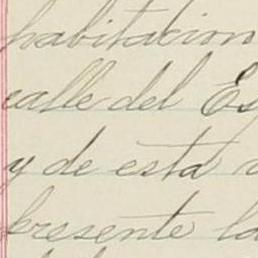 habitacion
calle del Es
y de esta
presente la